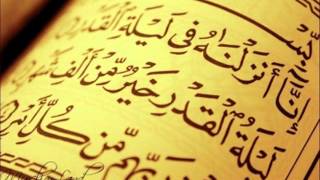 بِسْ
إِنَّا أَنزَلْنَٰهُ فِى لَيْلَةِ ٱلْقَدْرِ
لَيْلَةُ ٱلْقَدْرِ خَيْرٌ مِّنْ أَلْفِ شَهْرٍ
رَبِّهِم مِّن كُلِّ أَمْرٍ